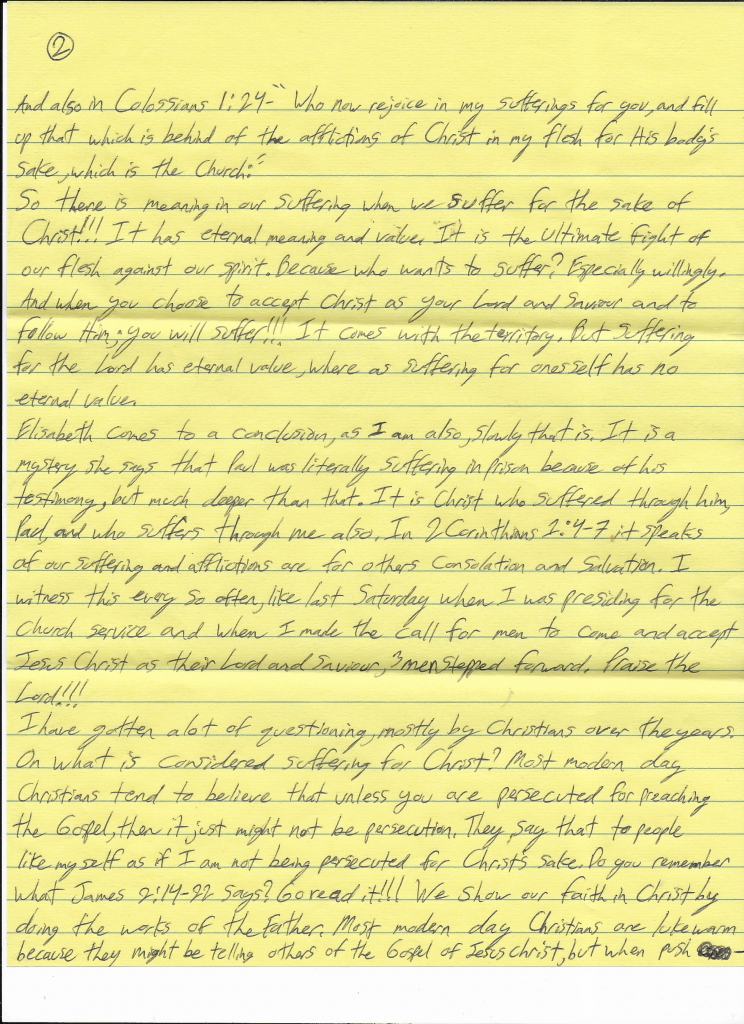 2
And also in Colossians 1:24-"Who now rejoice in my sufferings for you, and fill
up that which is behind of the afflictions of Christ in my flesh for His body's
sake, which is the Church:"
So there is meaning in our suffering when we suffer for the sake of
Christ!!! It has eternal meaning and value. It is the ultimate fight of
our flesh against our spirit. Because who wants to suffer? Especially willingly.
And when you choose to accept Christ as your Lord and Saviour and to
follow Him, you will suffer!!! It comes with the territory. But suffering
for the Lord has eternal value, where as suffering for ones self has no
eternal value.
Elisabeth comes to a conclusion, as I am also, slowly that is. It is a
mystery she says that Paul was literally suffering in prison because of his
testimony, but much deeper than that. It is Christ who suffered through him,
Paul, and who suffers through me also. In 2 Corinthians 1:4-7 it speaks
of our suffering and afflictions are for others Consolation and Salvation. I
witness this every so often, like last Saturday when I was presiding for the
church service and when I made the call for men to come and accept
Jesus Christ as their Lord and Saviour, 3 men stepped forward. Praise the
Lord!!!
I have gotten alot of questioning, mostly by Christians over the years.
On what is considered suffering for Christ? Most modern day
Christians tend to believe that unless you are persecuted for preaching
the Gospel, then it just might not be persecution. They say that to people
like myself as if I am not being persecuted for Christ's sake. Do you remember
what James 2:14-22 says? Go read it!!! We show our faith in Christ by
doing the works of the Father. Most modern day Christians are lukewarm
because they might be telling others of the Gospel of Jesus christ, but when push